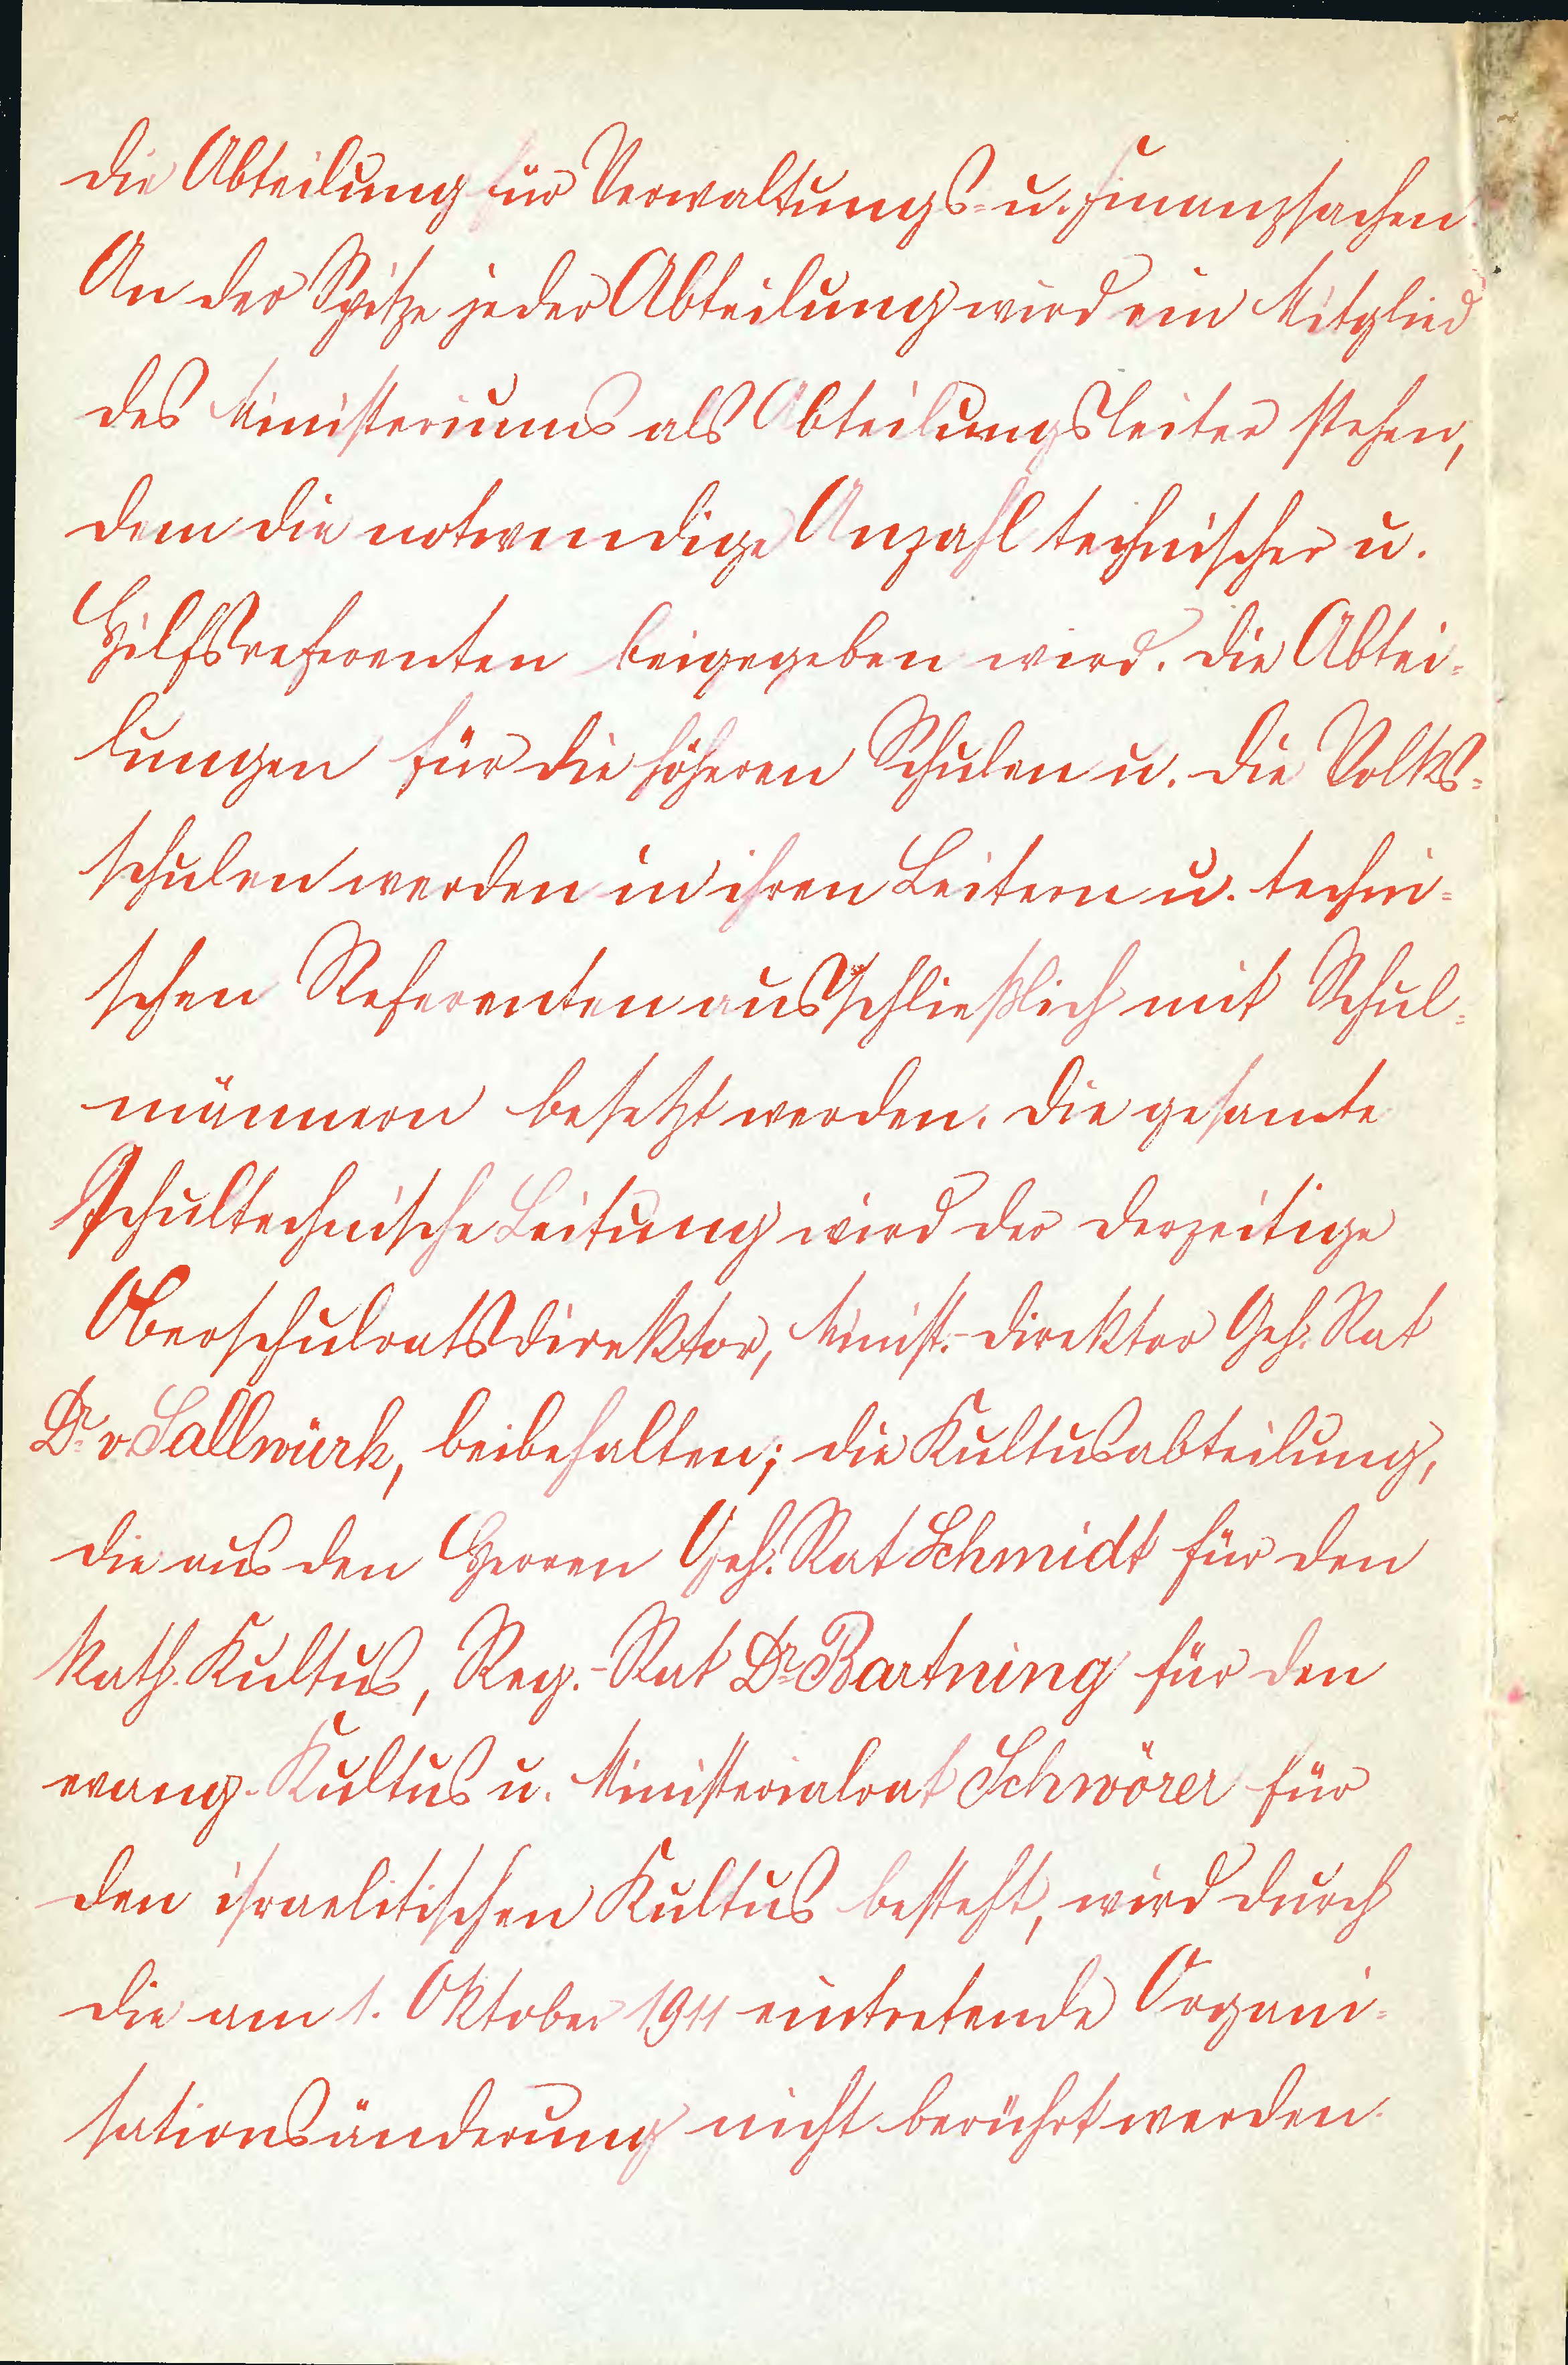 die Abteilung für Verwaltungs- u. Finanzsachen.
An der Spitze jeder Abteilung wird ein Mitglied
des Ministeriums als Abteilungsleiter stehen,
dem die notwendige Anzahl technischer u.
Hilfsreferenten beigegeben wird. Die Abtei-
lungen für die höheren Schulen u. die Volks-
schulen werden in ihren Leitern u. techni-
schen Referenten ausschließlich mit Schul-
männern besetzt werden. Die gesamte
schultechnische Leitung wird der derzeitige
Oberschulratsdirektor, Minist.-Direktor Geh. Rat
Dr. v. Sallwürk, beibehalten; die Kultusabteilung,
die aus den Herren Geh. Rat Schmidt für den
kath. Kultus, Reg.-Rat Dr. Bartning für den
evang. Kultus u. Ministerialrat Schwörer für
den israelitischen Kultus besteht, wird durch
die am 1. Oktober 1911 eintretende Organi-
sationsänderung nicht berührt werden.